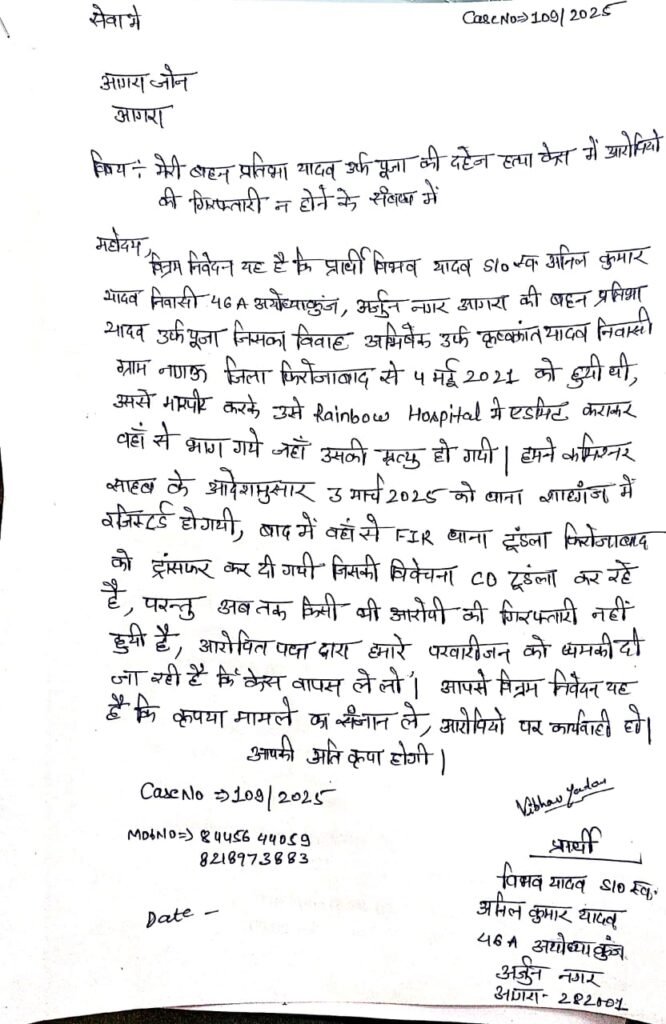 सेवा मे
Case No ⇒ 109/2025
आगरा जोन
आगरा
विषय :- मेरी बहन प्रतिभा यादव उर्फ पूजा की दहेज हत्या केस में आरोपियो
की गिरफ्तारी न होने के संबंध में
महोदय,
विनम्र निवेदन यह है कि प्रार्थी विभव यादव S/o स्व अनिल कुमार
यादव निवासी 46 A अयोध्याकुंज, अर्जुन नगर आगरा की बहन प्रतिभा
यादव उर्फ पूजा जिसका विवाह अभिषेक उर्फ कृष्णकांत यादव निवासी
ग्राम जिला फिरोजाबाद से 4 मई 2021 को हुयी थी,
उससे मारपीट करके उसे Rainbow Hospital मे एडमिट कराकर
वहाँ से भाग गये जहाँ उसकी मृत्यु हो गयी | हमने कमिश्नर
साहब के आदेशानुसार 3 मार्च 2025 को थाना शाहगंज में
रजिस्टर्ड होगयी, बाद में वहाँ से FIR थाना टूंडला फिरोजाबाद
को ट्रांसफर कर दी गयी जिसकी विवेचना CO टूंडला कर रहे
है, परन्तु अब तक किसी भी आरोपी की गिरफ्तारी नहीं
हुयी है, आरोपित पक्ष द्वारा हमारे परवारीजन को धमकी दी
जा रही है कि केस वापस ले लो | आपसे विनम्र निवेदन यह
है कि कृपया मामले का संज्ञान ले, आरोपियो पर कार्यवाही हो |
आपकी अति कृपा होगी |
Case No ⇒ 109/2025
Mob No ⇒ 84456 44059
8218973883
Date -
Vibhav Yadav
प्रार्थी
विभव यादव S/o स्व.
अनिल कुमार यादव
46 A अयोध्या कुंज
अर्जुन नगर
आगरा - 282001